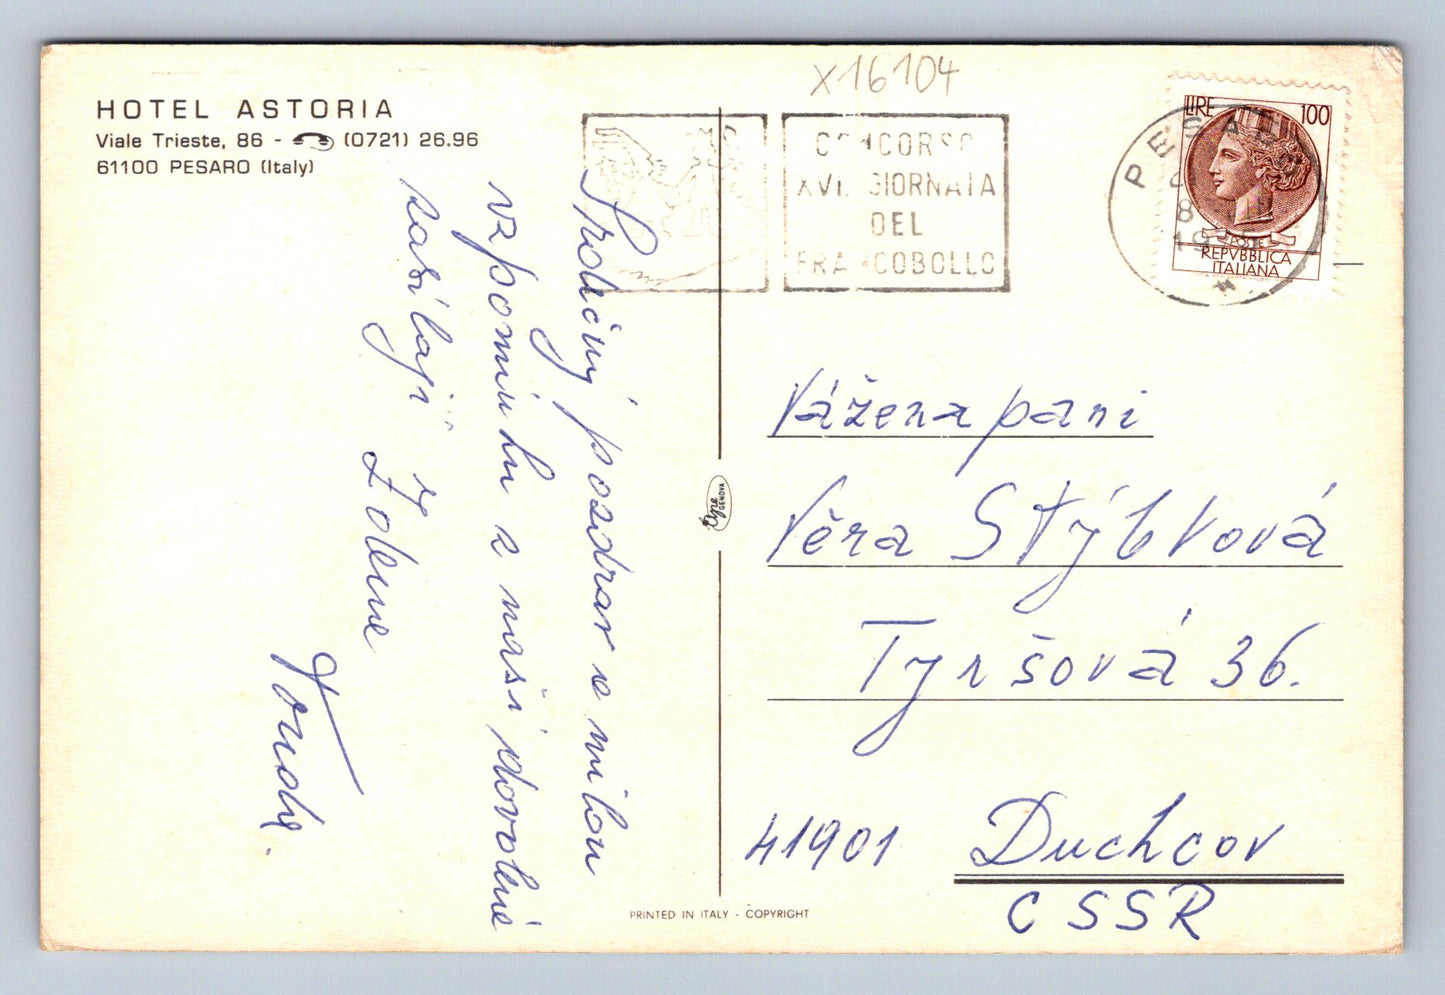 x16104
HOTEL ASTORIA
Viale Trieste, 86 - (0721) 26.96
61100 PESARO (Italy)
CONCORSO
XVII GIORNATA
DEL
FRANCOBOLLO
PESARO
8
19
LIRE 100
POSTE
REPVBBLICA
ITALIANA
Srdečný pozdrav a milou
vzpomínku z naši dovolené
zasílají
Vážena pani
Věra Stýblová
Tyršová 36.
41901 Duchcov
CSSR
GENOVA
PRINTED IN ITALY - COPYRIGHT